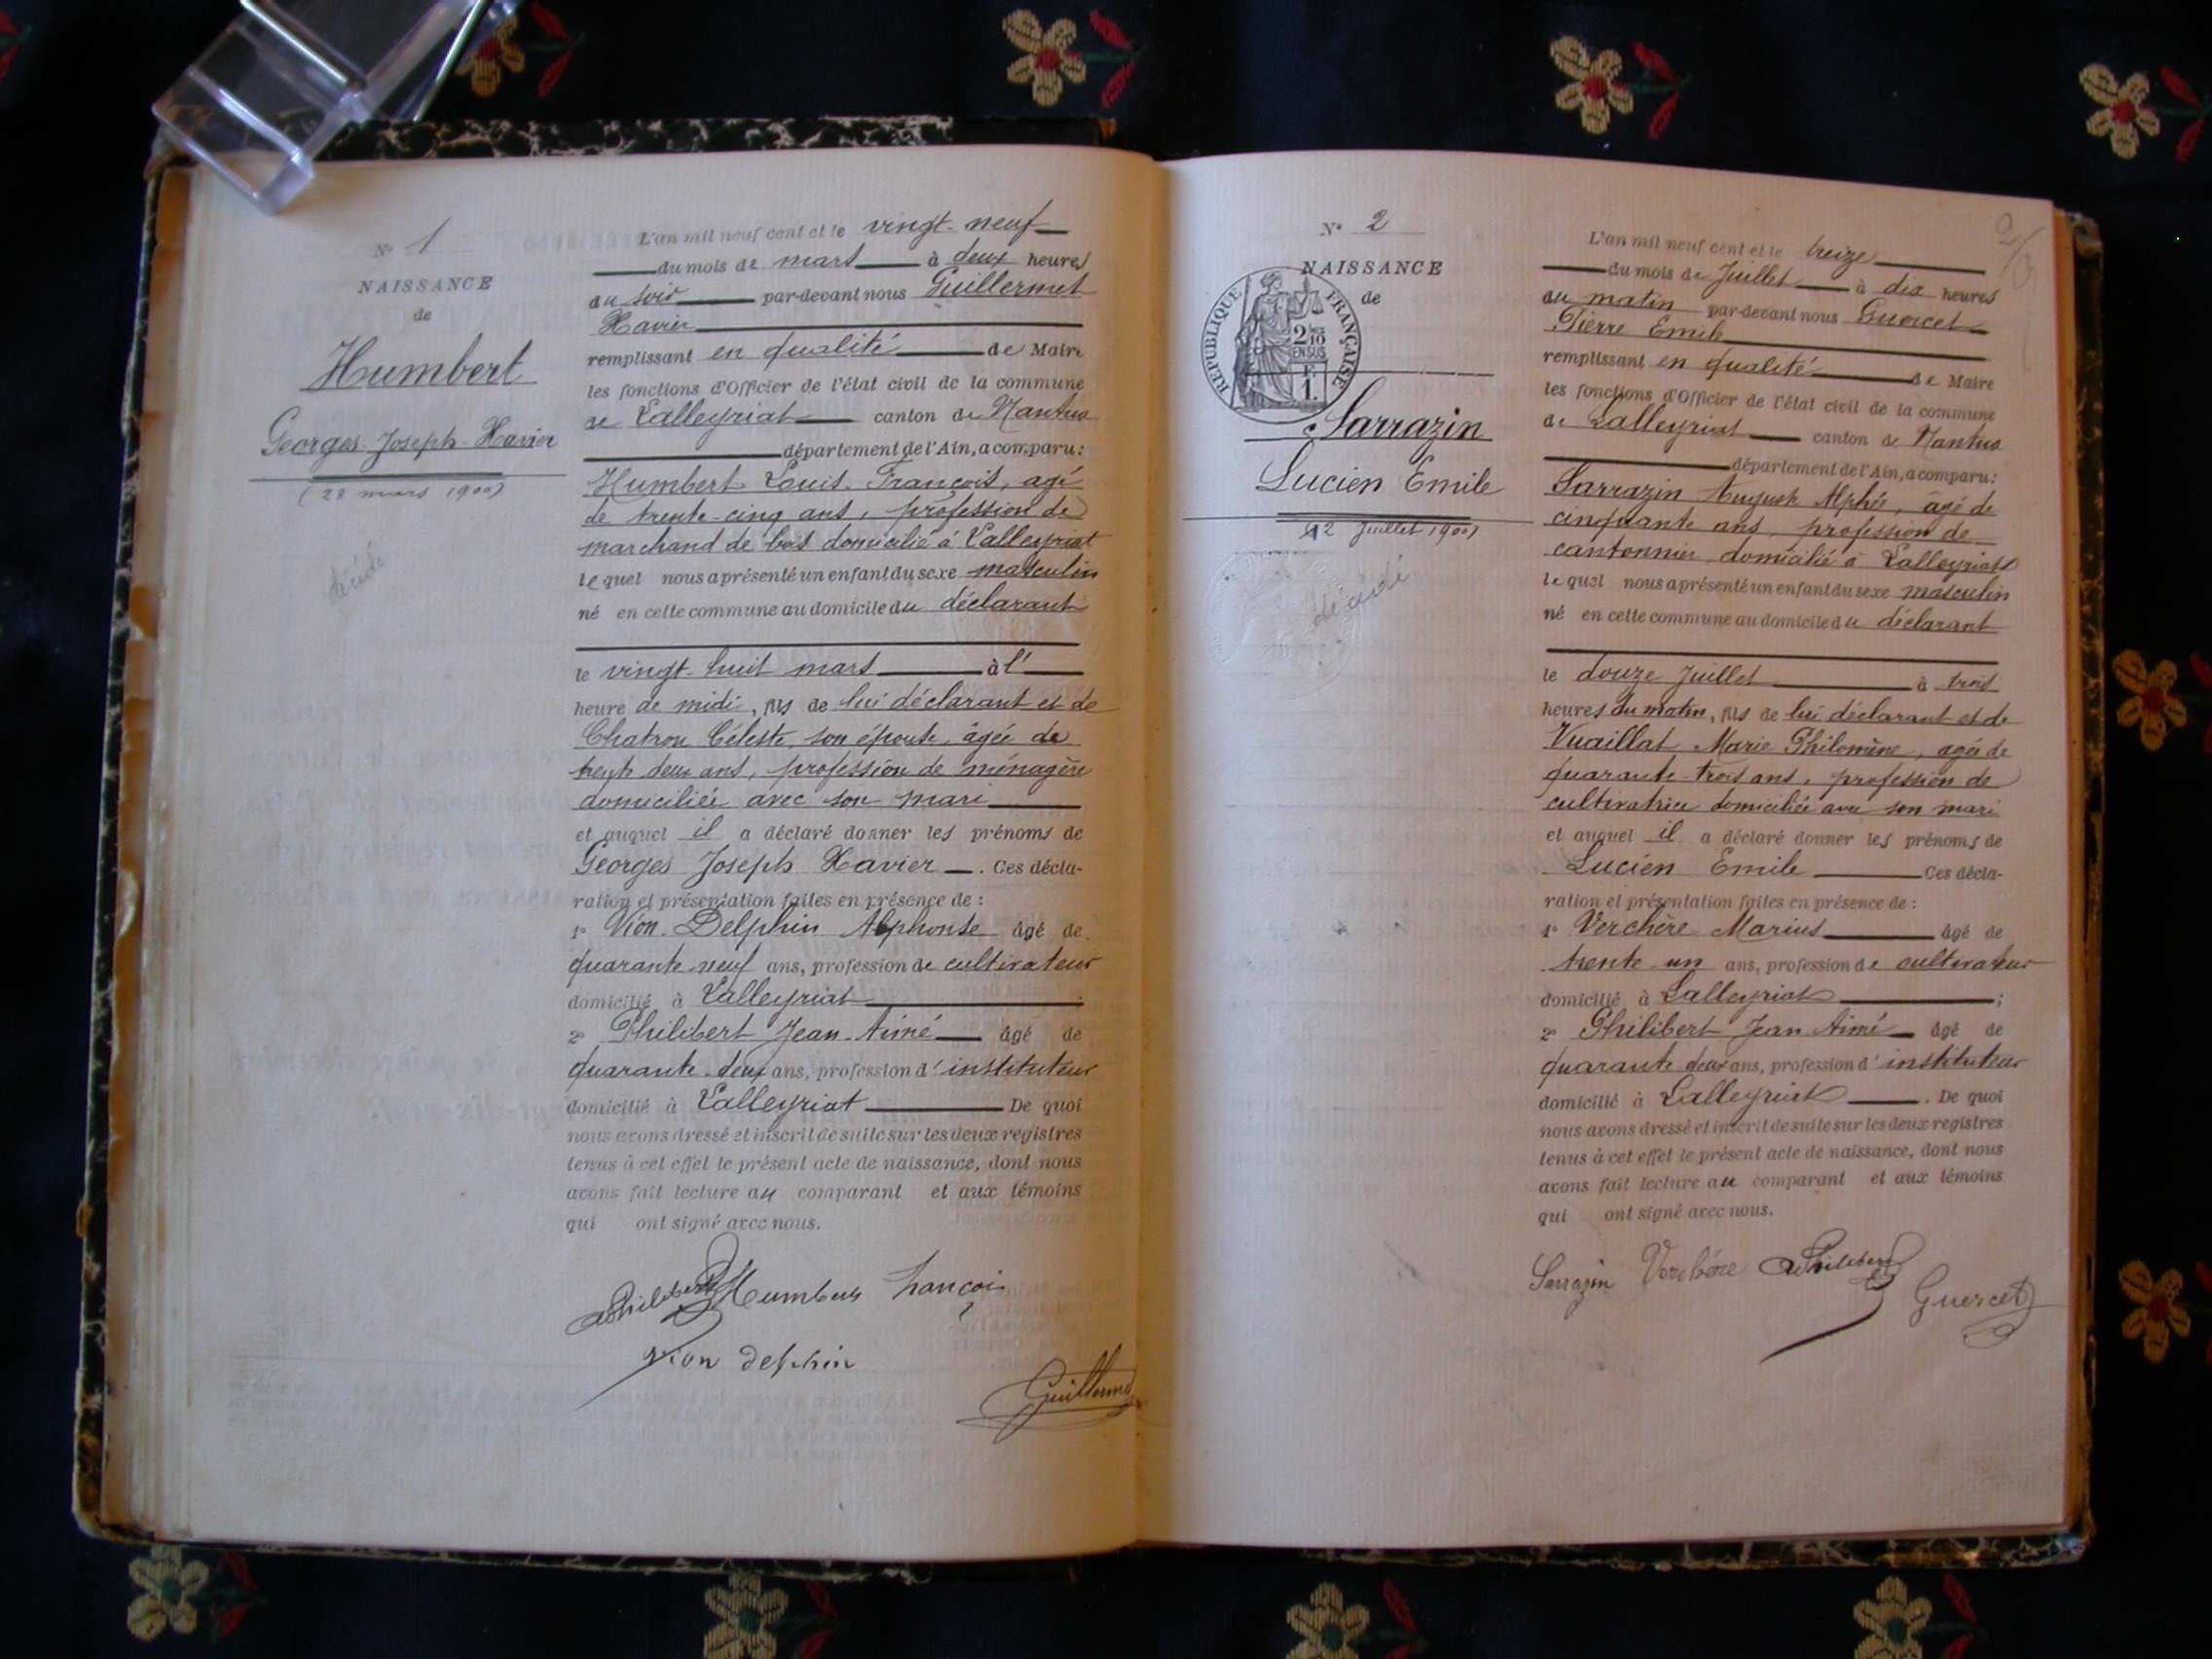 N° 1
NAISSANCE
de
Humbert
Georges Joseph Xavier
(28 mars 1900)
décédé
L'an mil neuf cent et le vingt-neuf
du mois de mars à deux heures
du soir par-devant nous Guillermet
Xavier
remplissant en qualité de Maire
les fonctions d'Officier de l'état civil de la commune
de Lalleyriat canton de Nantua
département de l'Ain, a comparu:
Humbert Louis François, agé
de trente-cinq ans, profession de
marchand de bois domicilié à Lalleyriat
lequel nous a présenté un enfant du sexe masculin
né en cette commune au domicile du déclarant
le vingt-huit mars à l'
heure de midi, fils de lui déclarant et de
Chatron Céleste, son épouse, âgée de
trente deux ans, profession de ménagère
domiciliée avec son mari
et auquel il a déclaré donner les prénoms de
Georges Joseph Xavier. Ces décla-
ration et présentation faites en présence de :
1° Vion Delphin Alphonse âgé de
quarante-neuf ans, profession de cultivateur
domicilié à Lalleyriat
2° Philibert Jean-Aimé âgé de
quarante-deux ans, profession d'instituteur
domicilié à Lalleyriat De quoi
nous avons dressé et inscrit de suite sur les deux registres
tenus à cet effet le présent acte de naissance, dont nous
avons fait lecture au comparant et aux témoins
qui ont signé avec nous.
Philibert Humbert françois
vion delphin
Guillermet
N° 2
NAISSANCE
de
REPUBLIQUE FRANÇAISE
2/10
EN SUS
F.
1.
Sarrazin
Lucien Emile
(12 Juillet 1900)
décédé
L'an mil neuf cent et le treize
du mois de Juillet à dix heures
du matin par-devant nous Guercet
Pierre Emile
remplissant en qualité de Maire
les fonctions d'Officier de l'état civil de la commune
de Lalleyriat canton de Nantua
département de l'Ain, a comparu:
Sarrazin August Alphée, âgé de
cinquante ans, profession de
cantonnier, domicilié à Lalleyriat
lequel nous a présenté un enfant du sexe masculin
né en cette commune au domicile du déclarant
le douze Juillet à trois
heures du matin, fils de lui déclarant et de
Vuaillat Marie Philomène, agée de
quarante-trois ans, profession de
cultivatrice domiciliée avec son mari
et auquel il a déclaré donner les prénoms de
Lucien Emile Ces décla-
ration et présentation faites en présence de :
1° Verchère Marius âgé de
trente-un ans, profession de cultivateur
domicilié à Lalleyriat ;
2° Philibert Jean Aimé âgé de
quarante deux ans, profession d'instituteur
domicilié à Lalleyriat . De quoi
nous avons dressé et inscrit de suite sur les deux registres
tenus à cet effet le présent acte de naissance, dont nous
avons fait lecture au comparant et aux témoins
qui ont signé avec nous.
Sarrazin Verchère Philibert
Guercet